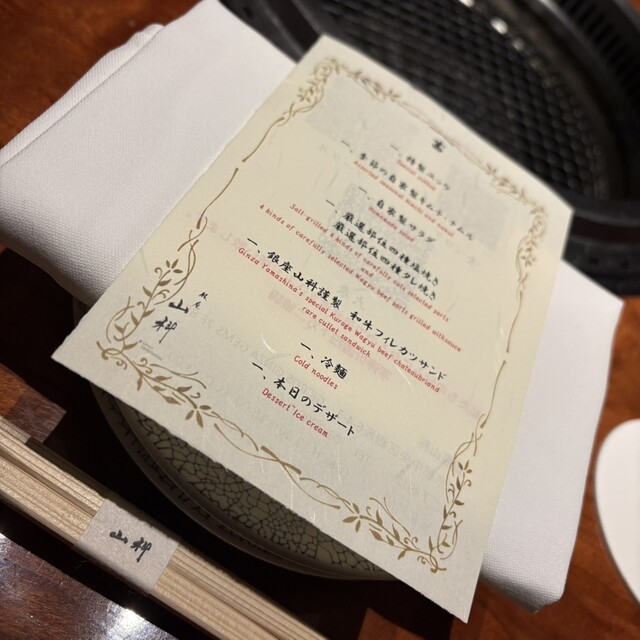 一、特製ユッケ
一、季節の自家製キムチ、ナムル
一、自家製サラダ
Homemade salad
一、厳選部位四種塩焼き
Salt grilled 4 kinds of carefully selected parts
厳選部位四種タレ焼き
4 kinds of carefully selected Wagyu beef parts grilled with sauce
一、銀座山科謹製 和牛フィレカツサンド
Ginza Yamashina's special Kuroge Wagyu beef Chateaubriand
rare cutlet sandwich
一、冷麺
Cold noodles
一、本日のデザート
Dessert ice cream
銀座
山科
山科